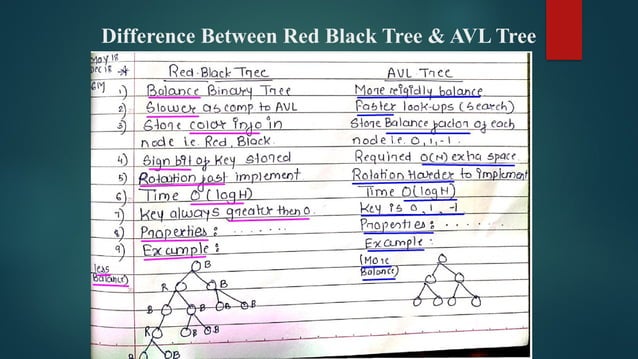 Difference Between Red Black Tree & AVL Tree
May 18
Dec 18
6M
Red-Black Tree
AVL Tree
1) Balance Binary Tree
More reigidly balance.
2) Slower as comp to AVL
Faster look-ups (search)
3) Store color info in
node i.e. Red, Black.
Store Balance factor of each
node i.e. 0, 1, -1.
4) Sign bit of key stored
Required O(N) extra space.
5) Rotation fast implement
Rotation Harder to implement
6) Time O(logH)
Time O(logH)
7) Key always greater then 0.
Key is 0, 1, -1
8) Properties: .......
Properties: .......
9) Example:
Example:
(less
Balance)
(More
Balance)
B
R B
B B B B
R B B
B B